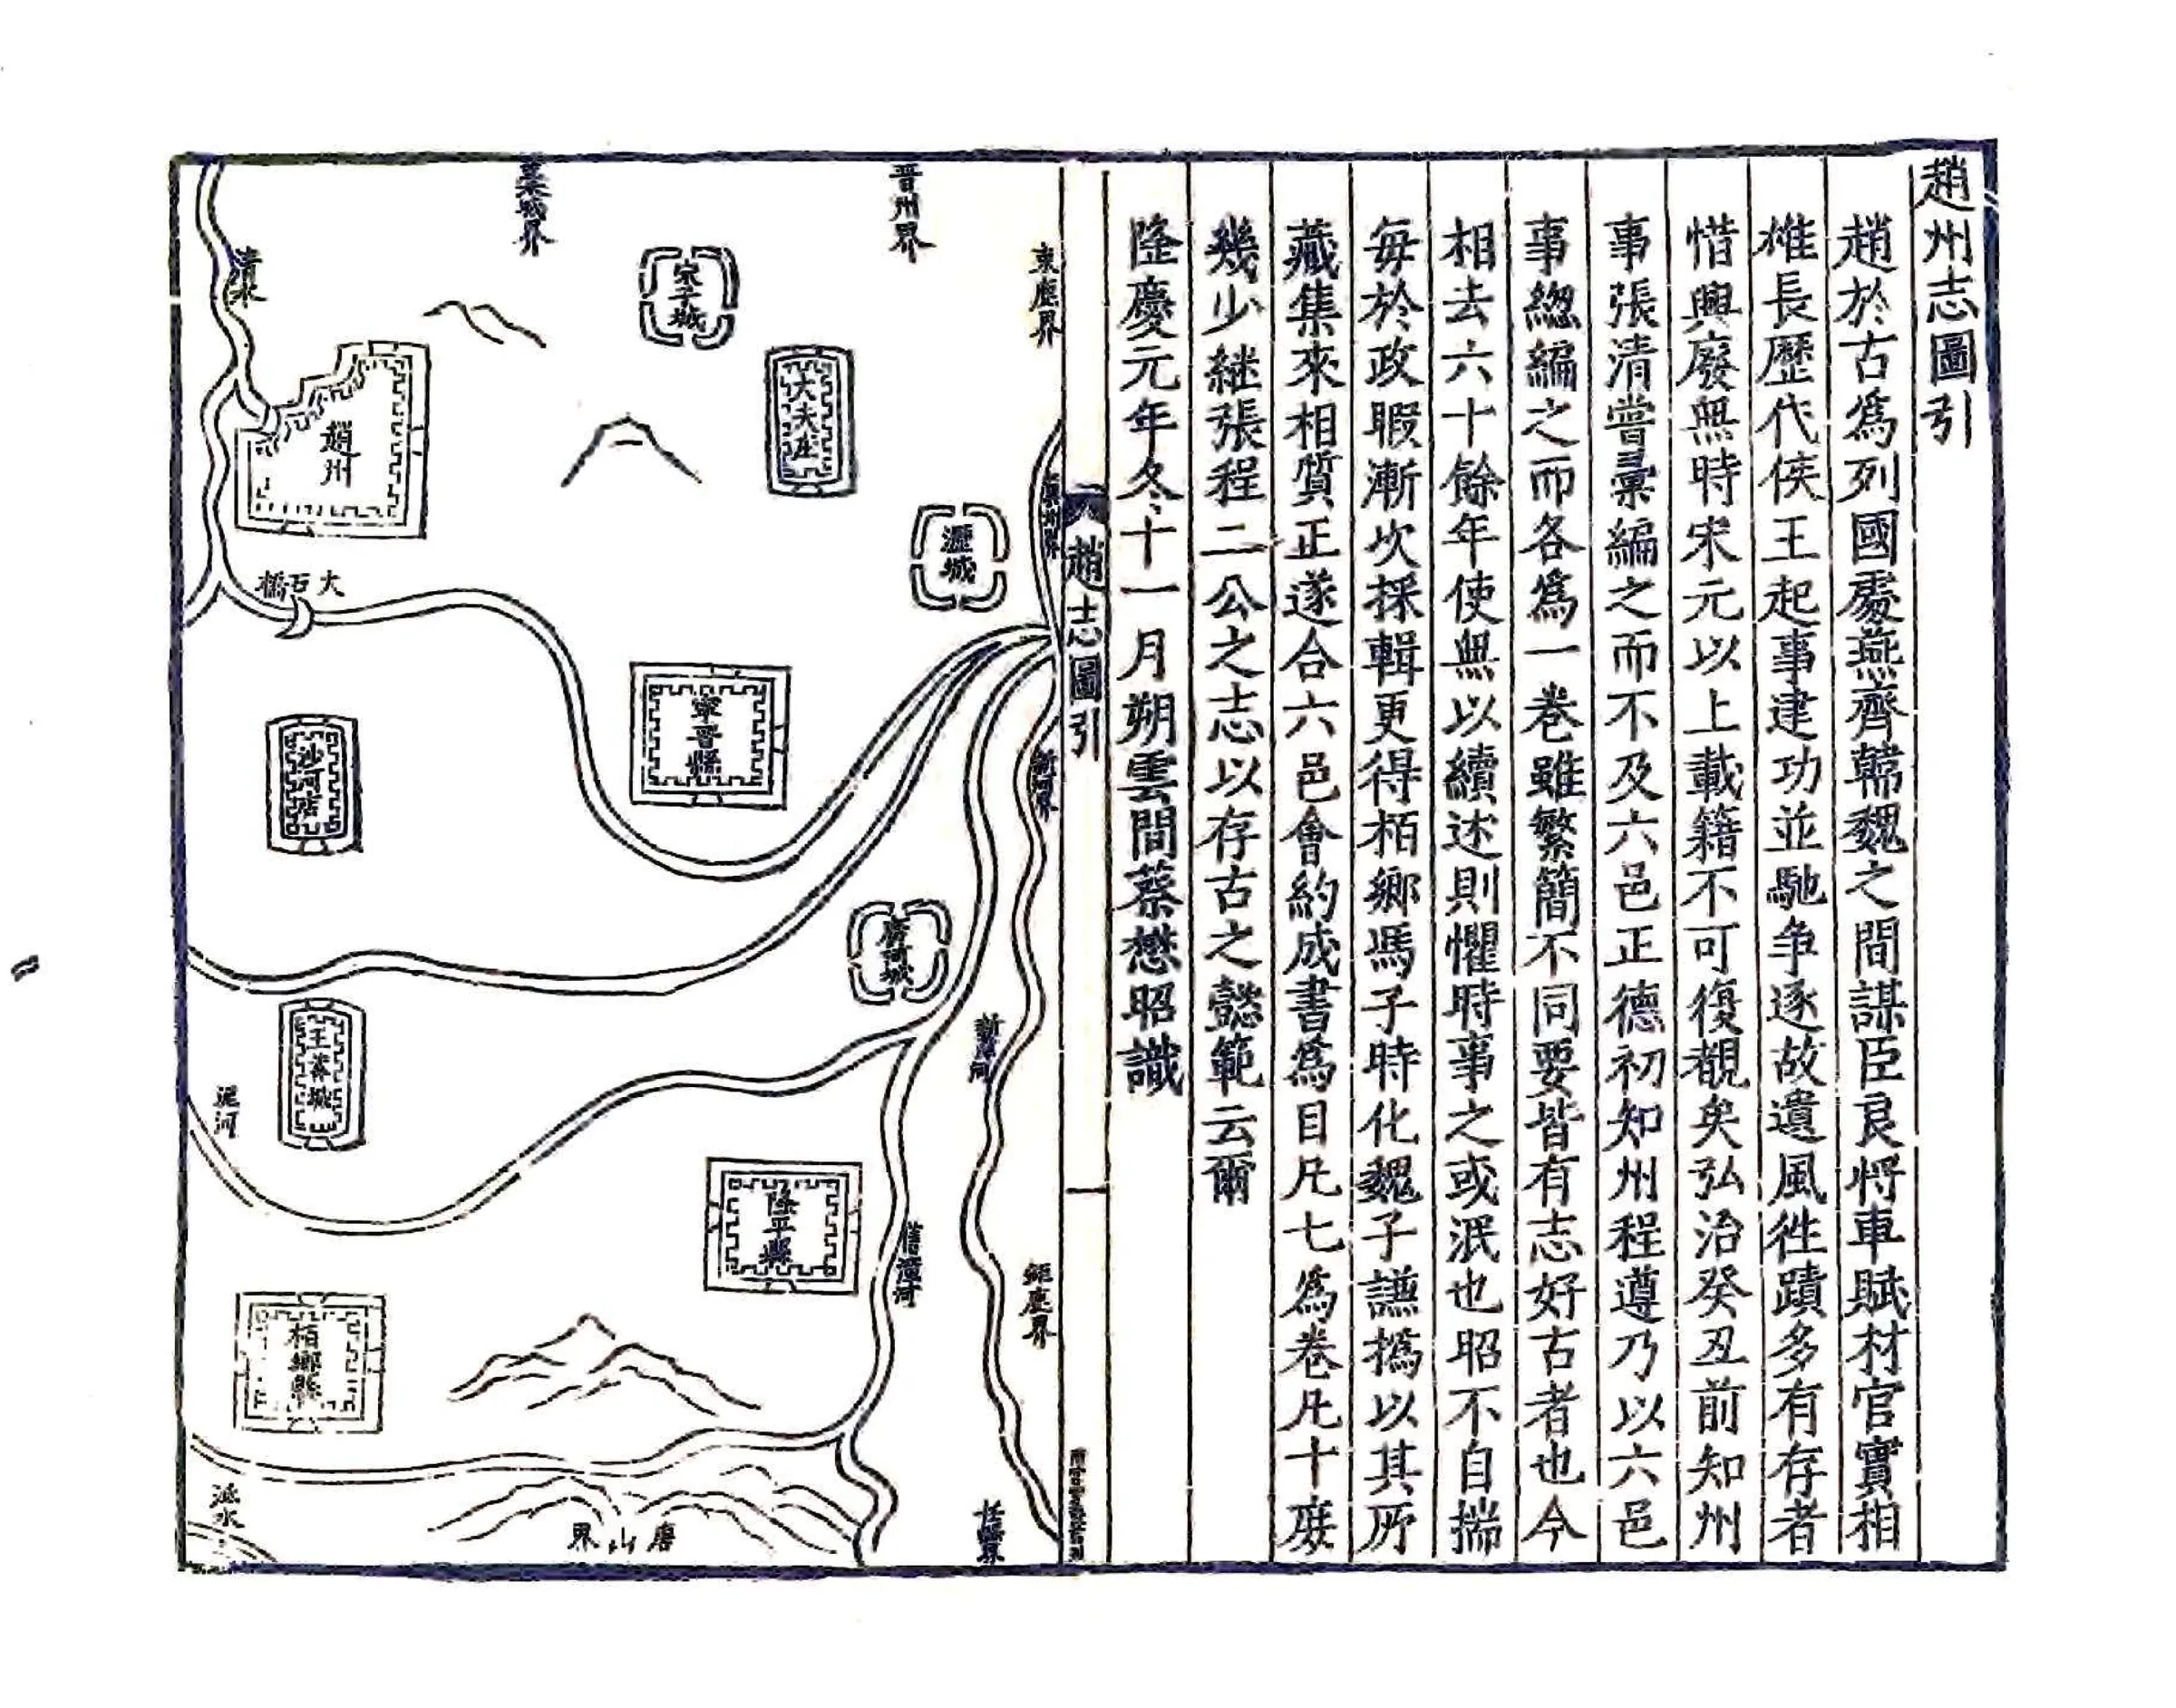 趙州志圖引
趙於古為列國處燕齊韓魏之間謀臣良將車賦材官實相
雄長歷代侯王起事建功並馳争逐故遺風徃蹟多有存者
惜興廢無時宋元以上載籍不可復覩矣弘治癸丑前知州
事張清嘗彙編之而不及六邑正德初知州程遵乃以六邑
事緫編之而各為一卷雖繁簡不同要皆有志好古者也今
相去六十餘年使無以續述則懼時事之或泯也昭不自揣
每於政暇漸次採輯更得栢鄉馬子時化魏子謙撝以其所
藏集來相質正遂合六邑會約成書為目凡七為卷凡十庻
幾少継張程二公之志以存古之懿範云爾
隆慶元年冬十一月朔雲間蔡懋昭識
趙志圖引
束鹿界
晋州界
藁城界
清水
宋子城
大夫庄
趙州
瀝城
冀州界
大石橋
寧晋縣
沙河店
新河界
王莽城
泥河
新漳河
隆平縣
舊漳河
鉅鹿界
栢鄉縣
泜水
唐山界
任縣界